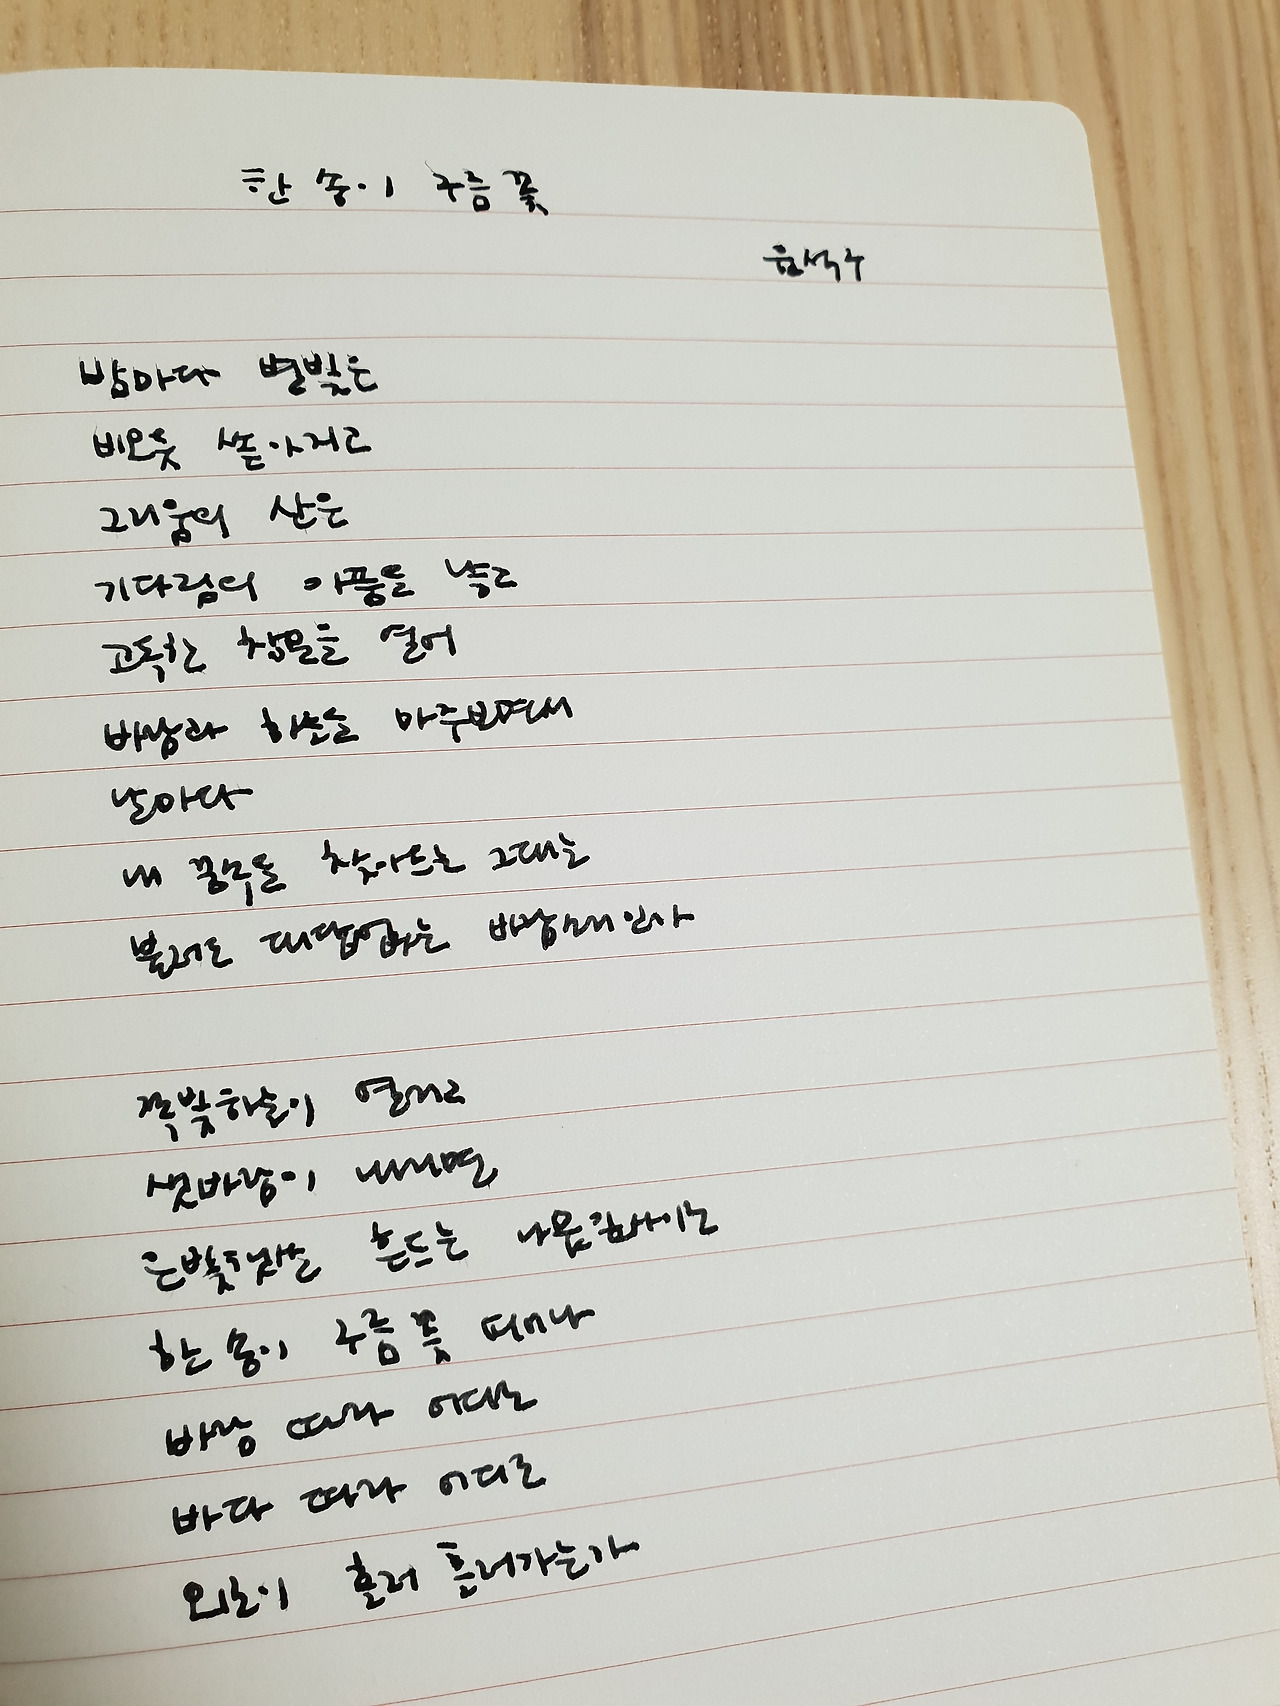 한 송이 구름 꽃
윤석수
밤마다 별빛은
비오듯 쏟아지고
그리움의 산은
기다림의 아픔을 낳고
고독한 창문을 열어
바람과 하늘을 마주보며서
날마다
내 꿈속을 찾아드는 그대는
불러도 대답없는 바람새인가
쪽빛하늘이 열리고
샛바람이 내리면
은빛햇살 흔드는 나뭇길사이로
한 송이 구름 꽃 피어나
바람 따라 어디로
바다 따라 어디로
외로이 흘러 흘러가는가